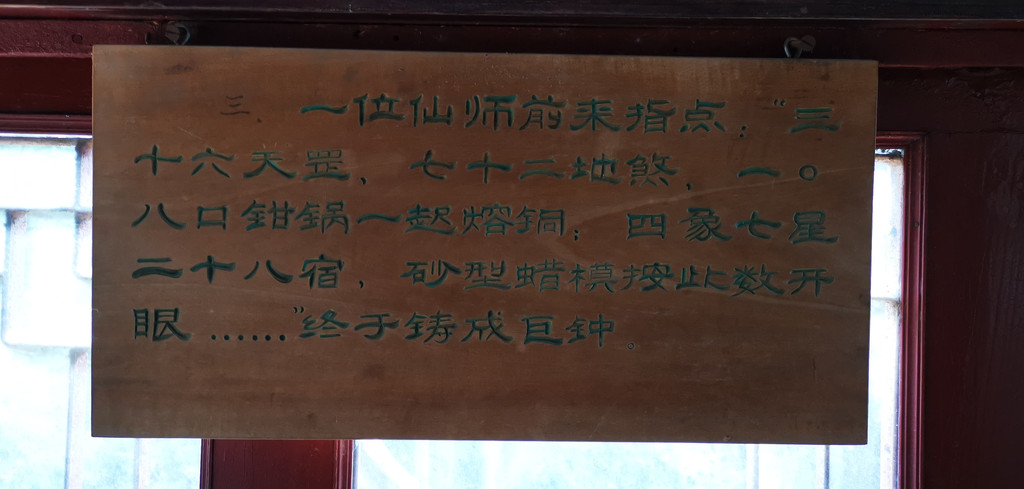 三．一位仙师前来指点："三
十六天罡、七十二地煞、一〇
八口钳锅一起熔铜；四象七星
二十八宿，砂型蜡模按此数开
眼……"终于铸成巨钟。